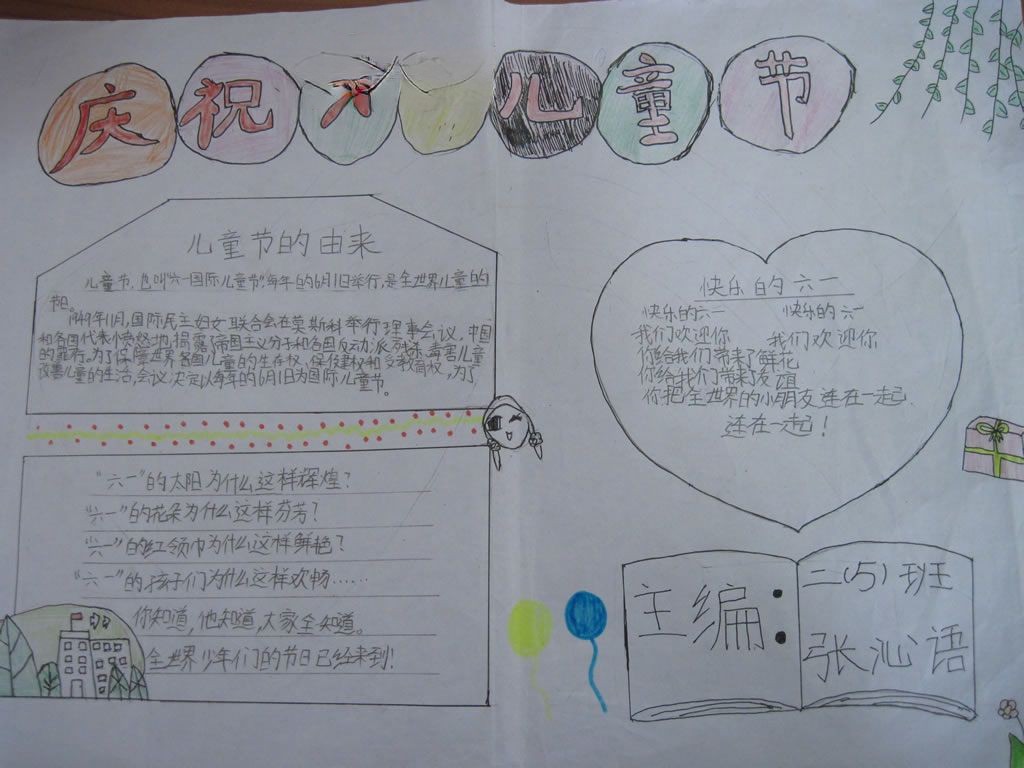 庆祝六 儿童节
儿童节的由来
儿童节,也叫“六一国际儿童节”,每年的6月1日举行,是全世界儿童的
节日。
1949年11月,国际民主妇女联合会在莫斯科举行理事会议,中国
和各国代表愤怒地揭露了帝国主义分子和各国反动派杀害毒害儿童
的罪行。为了保障世界各国儿童的生存权、保健权和受教育权,为了
改善儿童的生活,会议决定以每年的6月1日为国际儿童节。
“六一”的太阳为什么这样辉煌?
“六一”的花朵为什么这样芬芳?
“六一”的红领巾为什么这样鲜艳?
“六一”的孩子们为什么这样欢畅……
你知道,他知道,大家全知道。
全世界少年们的节日已经来到!
快乐的六一
快乐的六一 快乐的六一
我们欢迎你 我们欢迎你
你给我们带来了鲜花
你给我们带来了友谊
你把全世界的小朋友连在一起、
连在一起!
主编:
二(5)班
张沁语